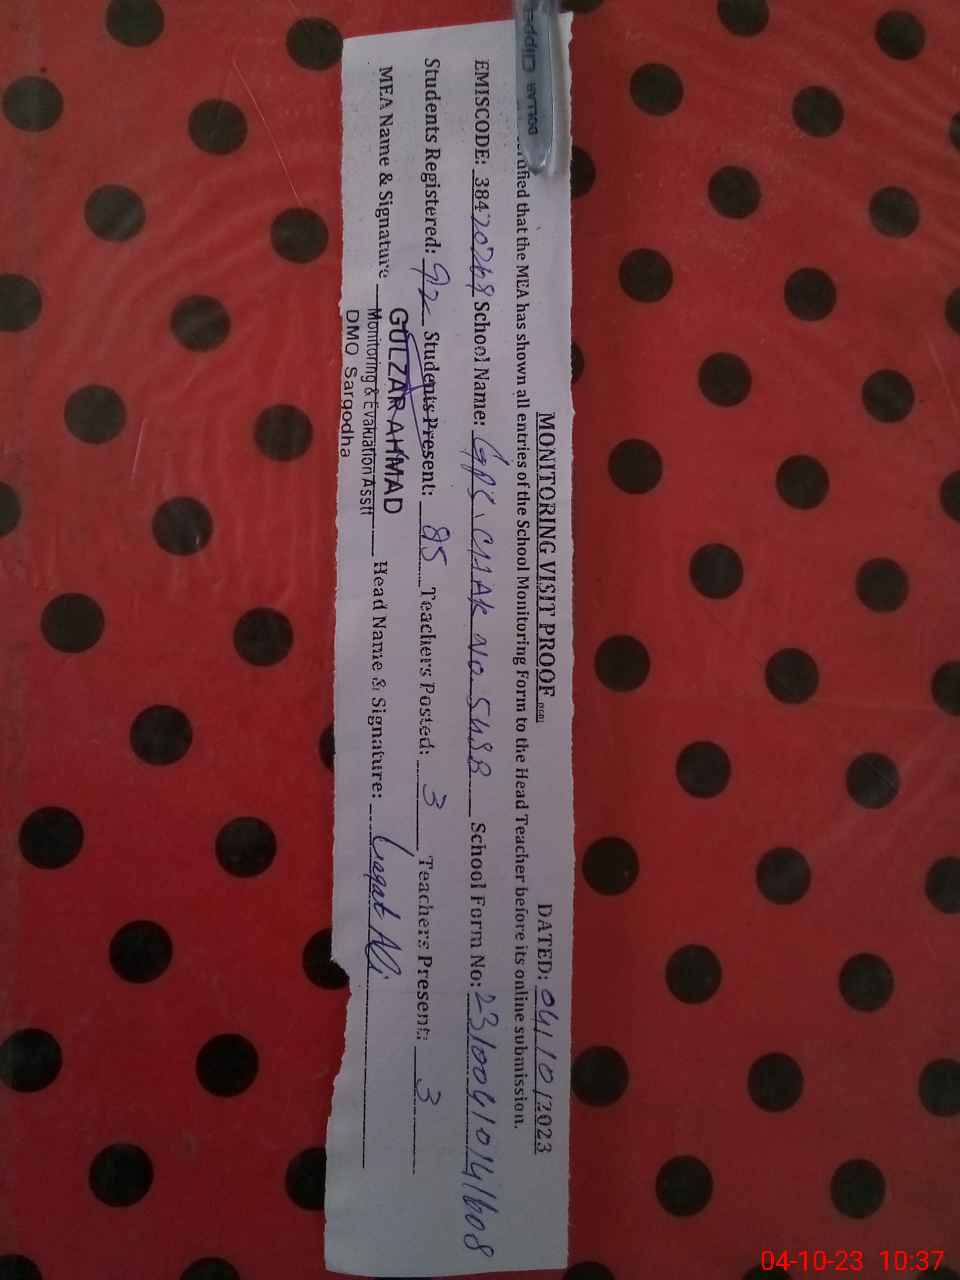 MONITORING VISIT PROOF DATED: 04/10/2023
that the MEA has shown all entries of the School Monitoring Form to the Head Teacher before its online submission.
EMISCODE: 38420269 School Name: GPS. CHAK No. 54SB School Form No: 23100410141608
Students Registered: 92 Students Present: 85 Teachers Posted: 3 Teachers Present: 3
MEA Name & Signature Head Name & Signature: Liaqat Ali
GULZAR AHMAD
Monitoring & Evaluation Asstt
DMO Sargodha
DOLLAR Clipper
04-10-23 10:37